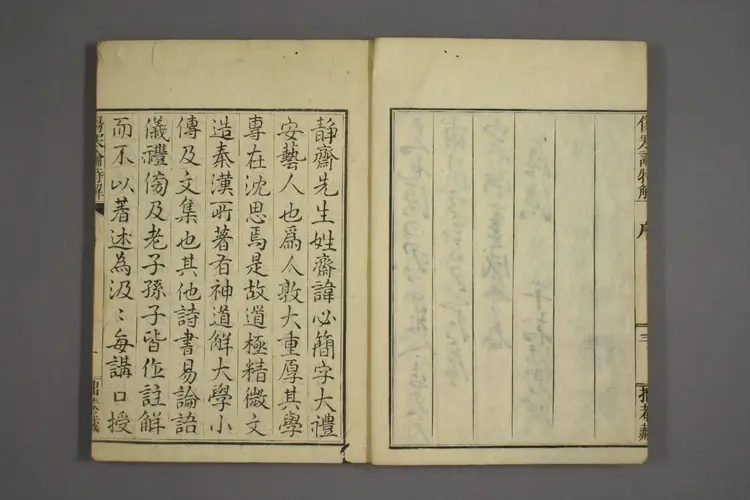 傷寒論特解
序
三
静齋先生姓齋諱必簡字大禮
安藝人也爲人敦大重厚其學
專在沈思焉是故道極精微文
造秦漢所著有神道解大學小
傳及文集也其他詩書易論語
儀禮傍及老子孫子皆作註解
而不以著述為汲〻每講口授
傷寒論特解
一